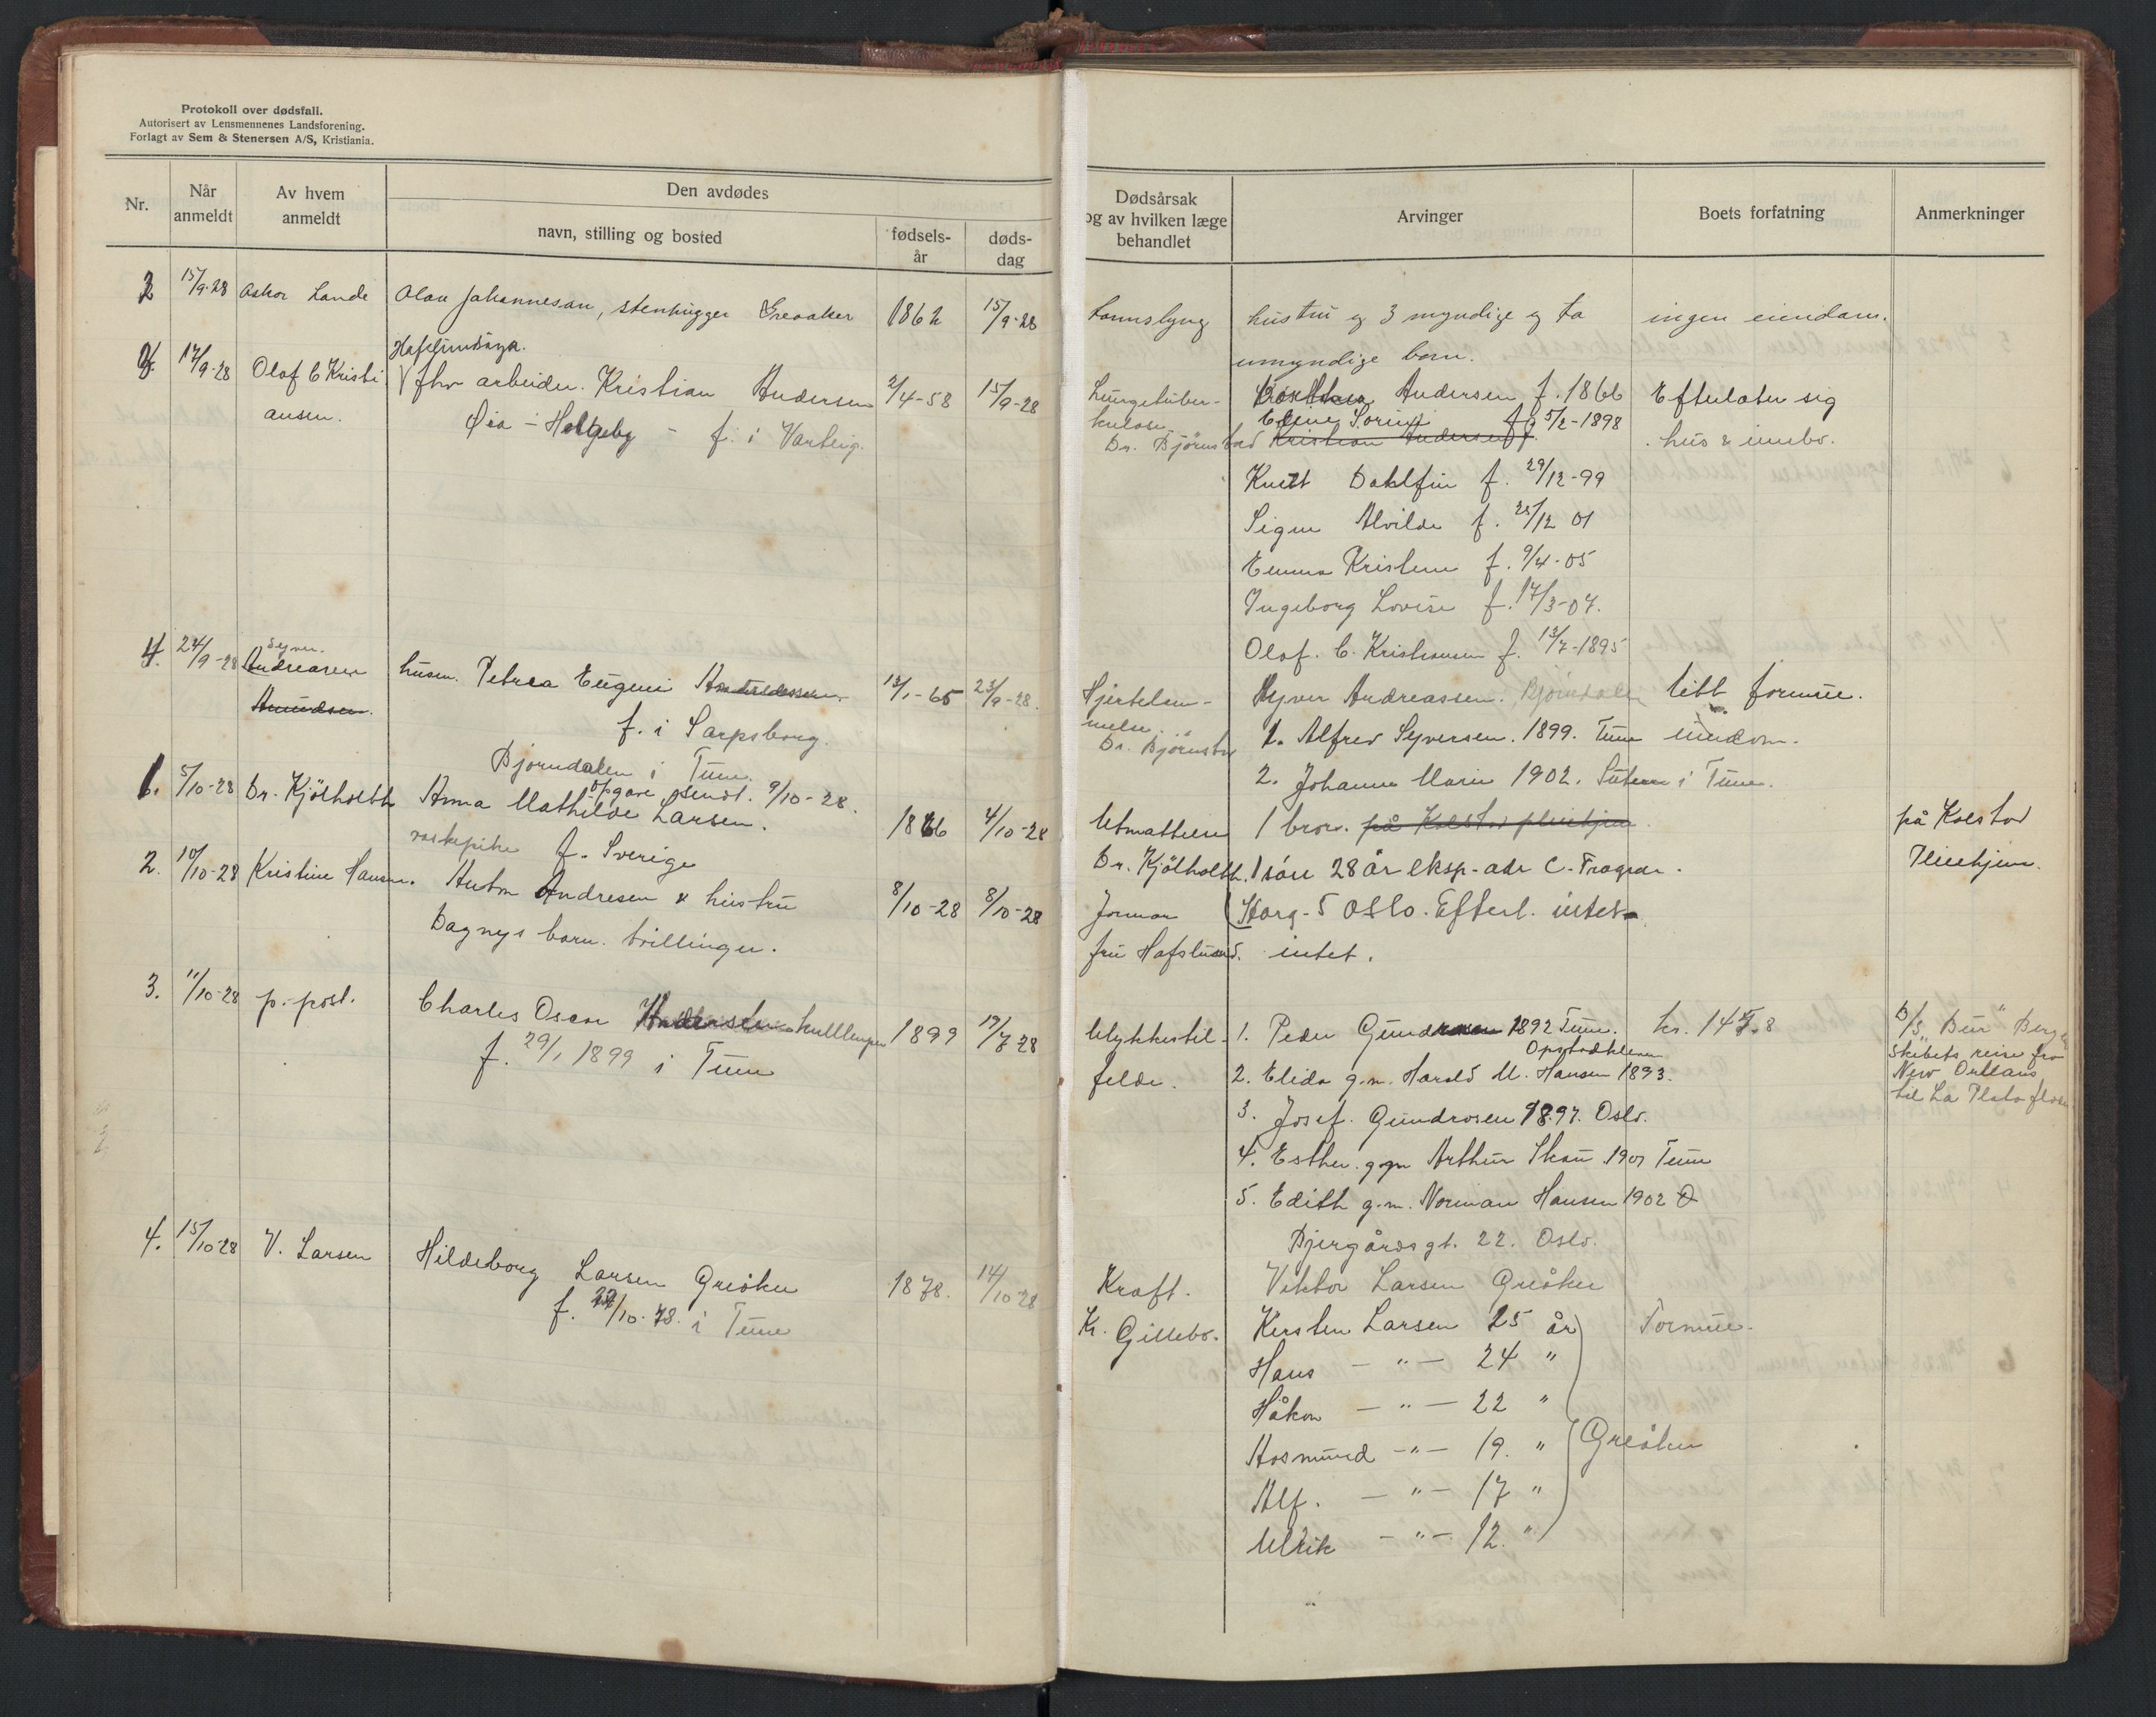 Protokoll over dødsfall.
Autorisert av Lensmennenes Landsforening.
Forlagt av Sem & Stenersen A/S, Kristiania.
Nr.
Når anmeldt
Av hvem anmeldt
Den avdødes
navn, stilling og bosted
fødsels-år
døds-dag
Dødsårsak og av hvilken læge behandlet
Arvinger
Boets forfatning
Anmerkninger
15/9-28 Lande Olav Johannesen, stenhugger Greaaker 1862 15/9-28
hustru og 3 myndige og to ingen eiendom.
umyndige barn.
Hafslundsøya.
17/9-28 Olof C Kristi fhv arbeider. Kristian Andersen 2/4-58 15/9-28
ansen. f. i Varteig.
Lungetuber- Andersen f. 1866 Efterlater sig
kulose f. 5/2-1898
Dr. Bjørnstad Kristian Andersen f. hus & innbo.
Knut Dahlfin f. 29/12-99
Signe Alvilde f. 28/12 01
Emma Kristine f. 9/4-05
Ingeborg Lovise f. 17/3-07.
Olof. C. Kristiansen f. 13/7-1895
Syver.
4. 24/9-28 Andreasen husm. Petrea Eugeni 13/1-65 23/9-28.
Amundsen. f. i Sarpsborg.
Bjørndalen i Tune.
opgave sendt. 9/10-28.
Hjertelam- Syver Andreassen. Bjørndalen litt formue.
melse.
Dr. Bjørnstad 1. Alfred Syversen. 1899. Tune eiendom.
2. Johanne Marie 1902. i Tune.
1. 5/10-28 Dr. Kjölholdt Anna Mathilde Larsen. 1866 4/10-28
vaskepike f. Sverige
Utmattelse 1 bror. på Kolstad pleiehjem på Kolstad
Dr. Kjölholdt. 1 sön 28 år eksp. adr C. Pleiehjem.
2. 10/10-28 Kristine Hansen. Anton Andresen & hustru 8/10-28 8/10-28
Dagnys barn. tvillinger.
Jormor Storg. 5 Oslo. Efterl. intet.
fru Hafslund. intet.
3. 11/10-28 p. post. Charles Oscar 1899 19/7 28
f. 29/1 1899 i Tune
Ulykkestil- 1. Peder 1892 Tune.
Opstadkleven
felde. 2. Elida g.m. Harald M. Hansen 1893.
3. Josef. Gundrosen 1897. Oslo.
4. Esther g.m. Arthur Skau 1901 Tune
5. Edith g.m. Norman Hansen 1902 O
Bjergårdsgt. 22. Oslo.
D/S "Bur" Bergen
Skibets reise fra
New Orleans
til La Plata floden
4. 15/10-28 V. Larsen Hildeborg Larsen Greåker 1878. 14/10-28
f. 10. 78. i Tune
Kræft. Viktor Larsen Greåker
Gillebo. Kirsten Larsen 25 år Formue.
Hans — " — 24 "
Håkon — " — 22 "
Aasmund — " — 19. " Greåker
Alf. — " — 17 "
Ulrik — " — 12. "